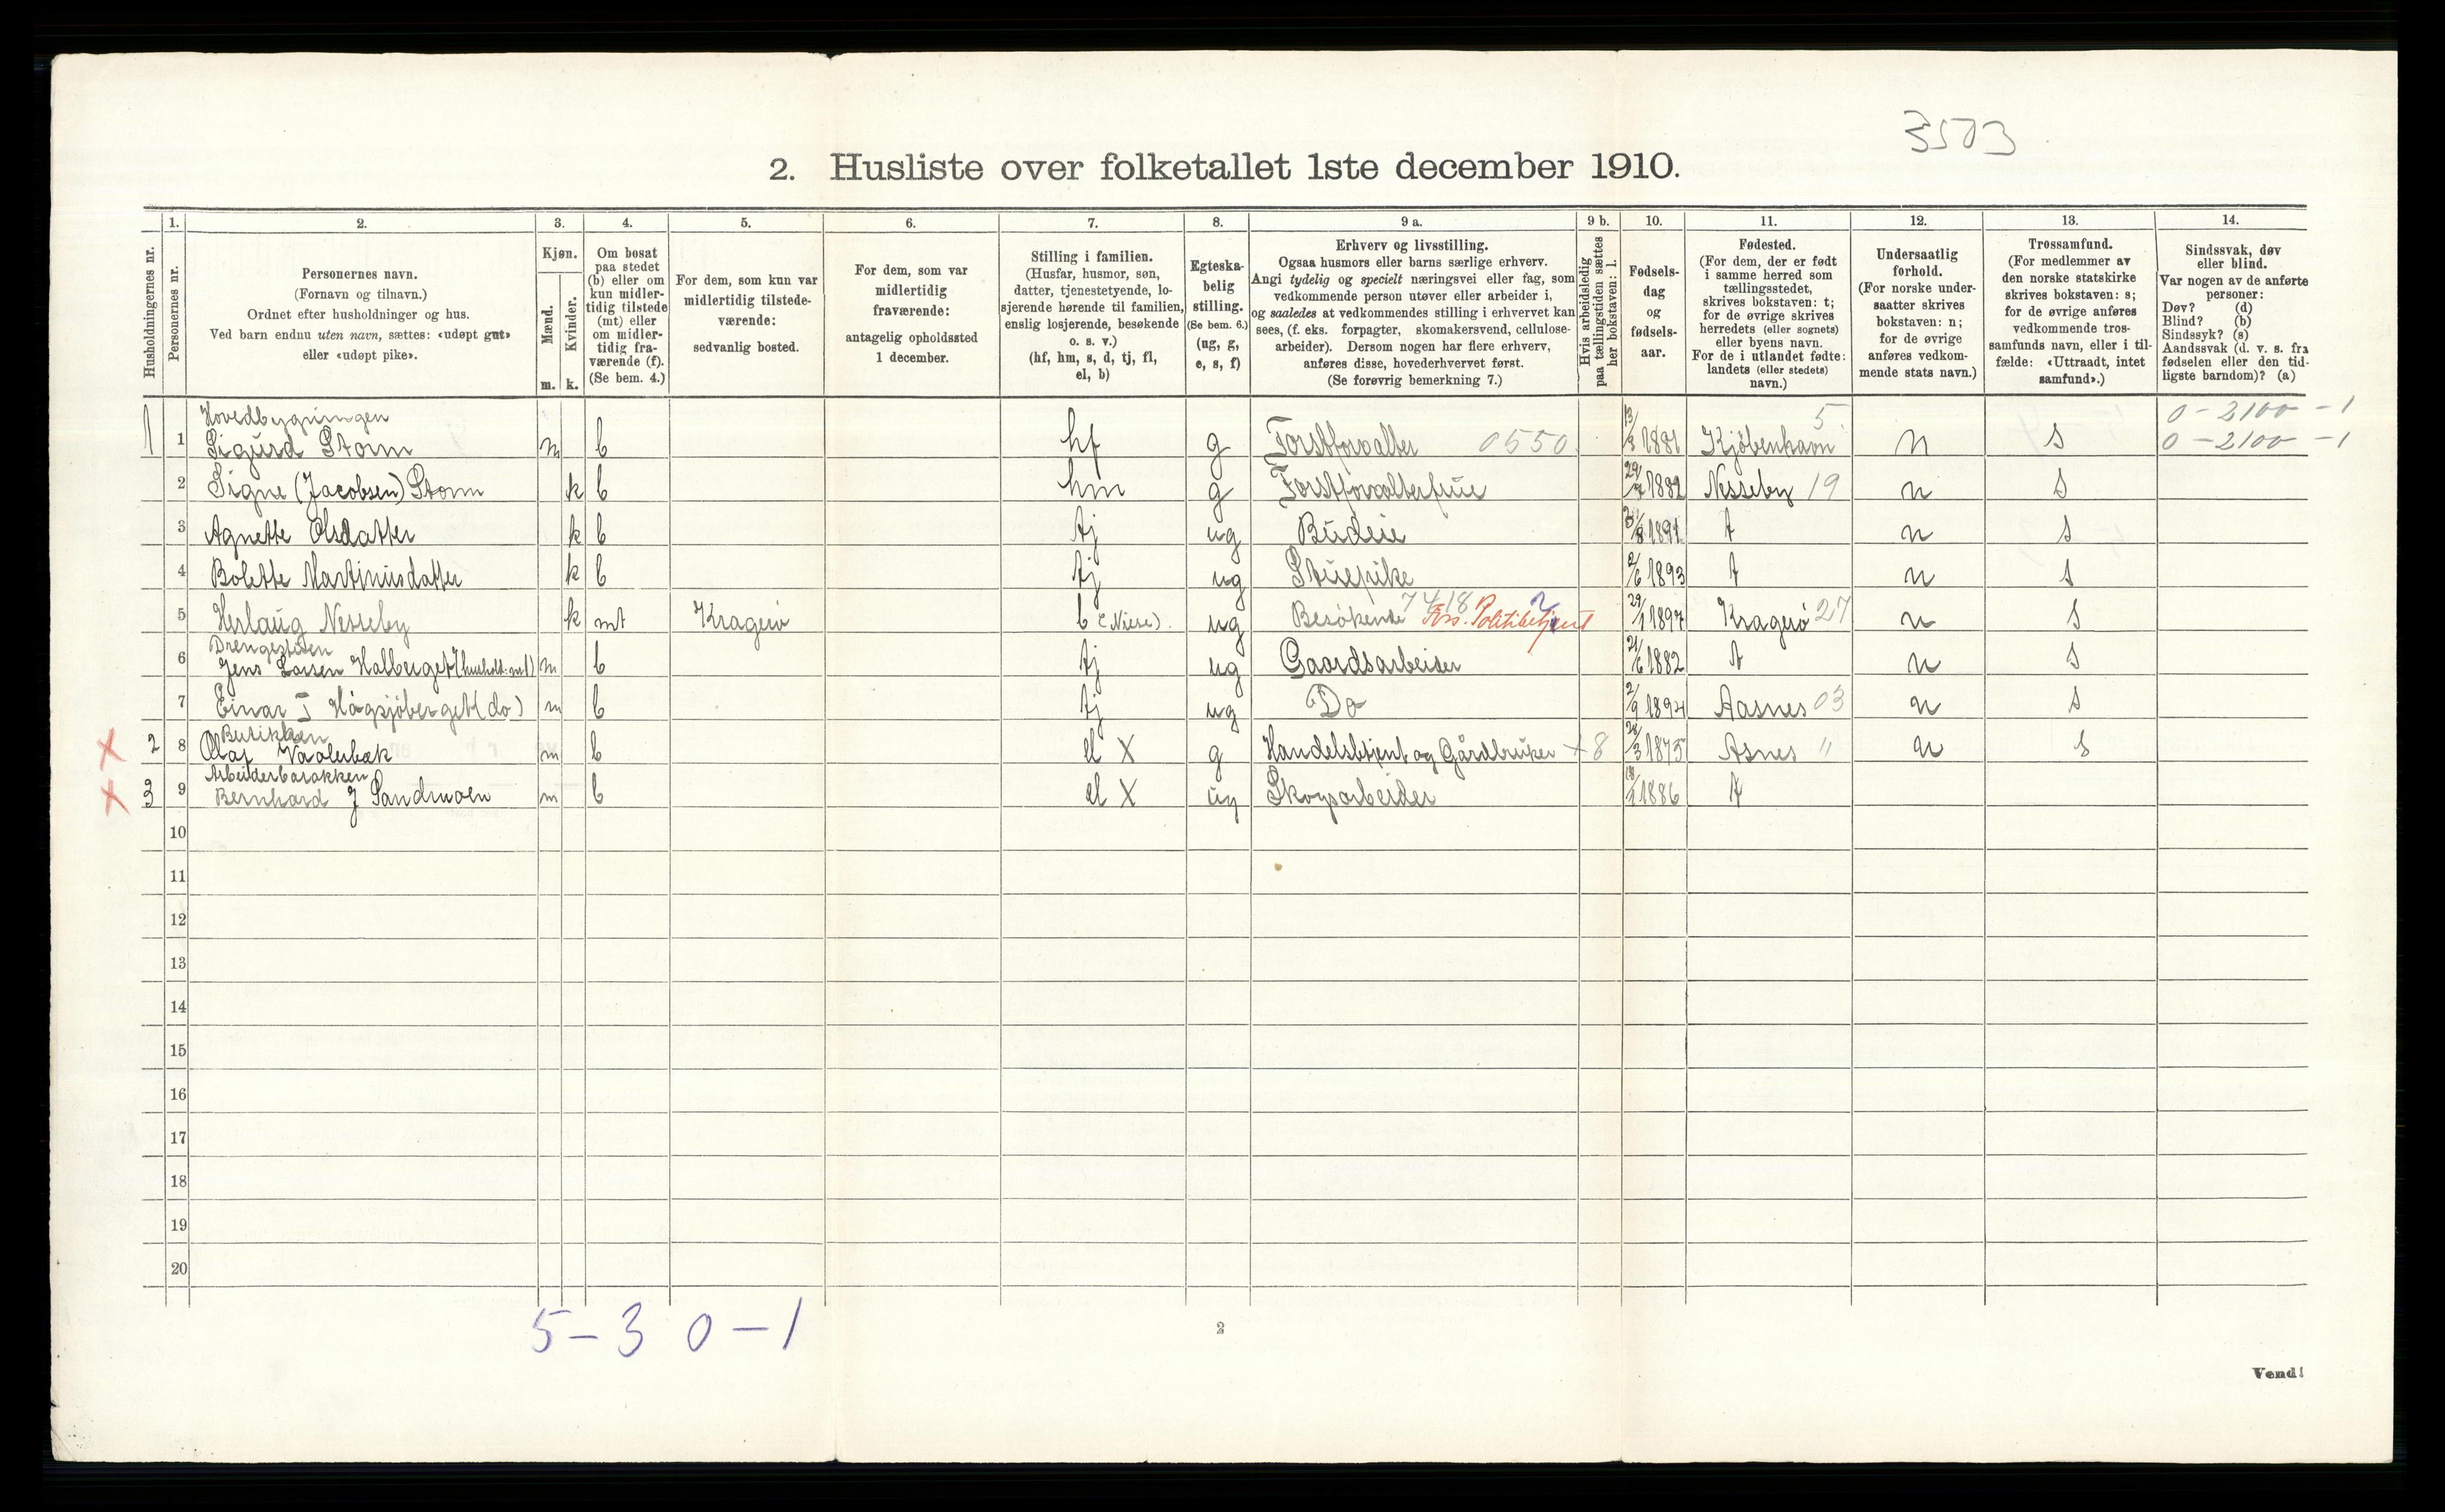 3503
2. Husliste over folketallet 1ste december 1910.
Husholdningernes nr.
1. Personernes nr.
2. Personernes navn.
(Fornavn og tilnavn.)
Ordnet efter husholdninger og hus.
Ved barn endnu uten navn, sættes: «udøpt gut»
eller «udøpt pike».
3. Kjøn.
Mænd. m.
Kvinder. k.
4. Om bosat
paa stedet
(b) eller om
kun midler-
tidig tilstede
(mt) eller
om midler-
tidig fra-
værende (f).
(Se bem. 4.)
5. For dem, som kun var
midlertidig tilstede-
værende:
sedvanlig bosted.
6. For dem, som var
midlertidig
fraværende:
antagelig opholdssted
1 december.
7. Stilling i familien.
(Husfar, husmor, søn,
datter, tjenestetyende, lo-
sjerende hørende til familien,
enslig losjerende, besøkende
o. s. v.)
(hf, hm, s, d, tj, fl,
el, b)
8. Egteska-
belig
stilling.
(Se bem. 6.)
(ug, g,
e, s, f)
9 a. Erhverv og livsstilling.
Ogsaa husmors eller barns særlige erhverv.
Angi tydelig og specielt næringsvei eller fag, som
vedkommende person utøver eller arbeider i,
og saaledes at vedkommendes stilling i erhvervet kan
sees, (f. eks. forpagter, skomakersvend, cellulose-
arbeider). Dersom nogen har flere erhverv,
anføres disse, hovederhvervet først.
(Se forøvrig bemerkning 7.)
9 b. Hvis arbeidsledig
paa tællingstiden sættes
her bokstaven: l.
10. Fødsels-
dag
og
fødsels-
aar.
11. Fødested.
(For dem, der er født
i samme herred som
tællingsstedet,
skrives bokstaven: t;
for de øvrige skrives
herredets (eller sognets)
eller byens navn.
For de i utlandet fødte:
landets (eller stedets)
navn.)
12. Undersaatlig
forhold.
(For norske under-
saatter skrives
bokstaven: n;
for de øvrige
anføres vedkom-
mende stats navn.)
13. Trossamfund.
(For medlemmer av
den norske statskirke
skrives bokstaven: s;
for de øvrige anføres
vedkommende tros-
samfunds navn, eller i til-
fælde: «Uttraadt, intet
samfund».)
14. Sindssvak, døv
eller blind.
Var nogen av de anførte
personer:
Døv? (d)
Blind? (b)
Sindssyk? (s)
Aandssvak (d. v. s. fra
fødselen eller den tid-
ligste barndom)? (a)
Hovedbygningen 5 0 - 2100 - 1
1 1 Sigurd Storm m b hf g Forstforvalter 0550 13/8 1881 Kjöbenhavn n s 0 - 2100 - 1
2 Signe (Jacobsen) Storm k b hm g Forstforvalterfrue 29/7 1882 Nesseby 19 n s
3 Agnette Olsdatter k b tj ug Budeie 1891 t n s
4 Bolette Martinusdatter k b tj ug Stuepike 2/6 1893 t n s
5 Herlaug Nesseby k mt Kragerö b (Niese). ug Besökende 7418 Fors. Politibetjent 29/1 1897 Kragerö 27 n s
Drengestuen
6 Jens Larsen Halberget (hushold: nr1) m b tj ug Gaardsarbeider 21/6 1882 t n s
7 Einar J Hågsjöberget (do) m b tj ug Do 2/9 1894 Aasnes 03 n s
Butikken
X 2 8 Olaf Vaalerbæk m b el X g Handelsbetjent og Gårdbruker + 8 28/3 1875 Asnes " n s
Arbeiderbarakken
X 3 9 Bernhard J Sandmoen m b el X ug Skogsarbeider 1886 t
10
11
12
13
14
15
16
17
18
19
20
5 - 3 0 - 1
2
Vend!